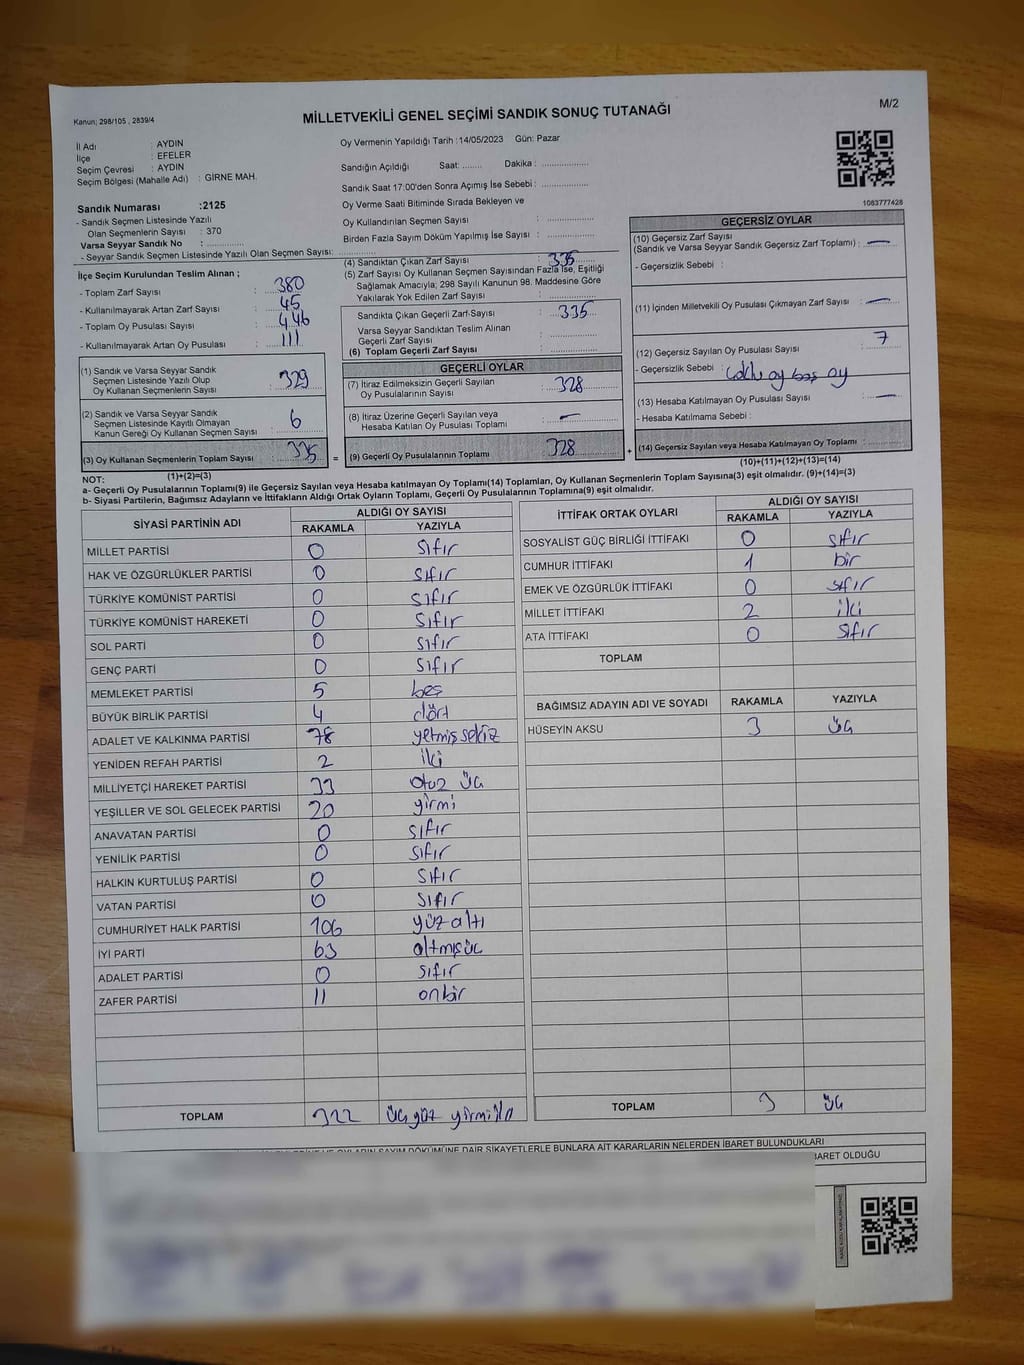 Kanun; 298/105 , 2839/4
MİLLETVEKİLİ GENEL SEÇİMİ SANDIK SONUÇ TUTANAĞI
M/2
İl Adı : AYDIN
İlçe : EFELER
Seçim Çevresi : AYDIN
Seçim Bölgesi (Mahalle Adı) : GİRNE MAH.
Sandık Numarası :2125
- Sandık Seçmen Listesinde Yazılı
Olan Seçmenlerin Sayısı : 370
Varsa Seyyar Sandık No : ..............
- Seyyar Sandık Seçmen Listesinde Yazılı Olan Seçmen Sayısı: ..............
Oy Vermenin Yapıldığı Tarih : 14/05/2023 Gün: Pazar
Sandığın Açıldığı Saat: ....... Dakika : ................
Sandık Saat 17:00'den Sonra Açımış İse Sebebi : ................
Oy Verme Saati Bitiminde Sırada Bekleyen ve
Oy Kullandırılan Seçmen Sayısı : ................
Birden Fazla Sayım Döküm Yapılmış İse Sayısı : ................
1083777428
İlçe Seçim Kurulundan Teslim Alınan ;
- Toplam Zarf Sayısı : 380
- Kullanılmayarak Artan Zarf Sayısı : 45
- Toplam Oy Pusulası Sayısı : 446
- Kullanılmayarak Artan Oy Pusulası : 111
(1) Sandık ve Varsa Seyyar Sandık
Seçmen Listesinde Yazılı Olup
Oy Kullanan Seçmenlerin Sayısı : 329
(2) Sandık ve Varsa Seyyar Sandık
Seçmen Listesinde Kayıtlı Olmayan
Kanun Gereği Oy Kullanan Seçmen Sayısı : 6
(3) Oy Kullanan Seçmenlerin Toplam Sayısı : 335
(4) Sandıktan Çıkan Zarf Sayısı : 335
(5) Zarf Sayısı Oy Kullanan Seçmen Sayısından Fazla İse, Eşitliği
Sağlamak Amacıyla; 298 Sayılı Kanunun 98. Maddesine Göre
Yakılarak Yok Edilen Zarf Sayısı : ..............
Sandıkta Çıkan Geçerli Zarf Sayısı : 335
Varsa Seyyar Sandıktan Teslim Alınan
Geçerli Zarf Sayısı : ..............
(6) Toplam Geçerli Zarf Sayısı : ..............
GEÇERLİ OYLAR
(7) İtiraz Edilmeksizin Geçerli Sayılan
Oy Pusulasının Sayısı : 328
(8) İtiraz Üzerine Geçerli Sayılan veya
Hesaba Katılan Oy Pusulası Toplamı : —
= (9) Geçerli Oy Pusulalarının Toplamı : 328
GEÇERSİZ OYLAR
(10) Geçersiz Zarf Sayısı
(Sandık ve Varsa Seyyar Sandık Geçersiz Zarf Toplamı) : —
- Geçersizlik Sebebi :
(11) İçinden Milletvekili Oy Pusulası Çıkmayan Zarf Sayısı : —
(12) Geçersiz Sayılan Oy Pusulası Sayısı : 7
- Geçersizlik Sebebi : oy boş oy
(13) Hesaba Katılmayan Oy Pusulası Sayısı : —
- Hesaba Katılmama Sebebi :
+ (14) Geçersiz Sayılan veya Hesaba Katılmayan Oy Toplamı : ..........
NOT: (1)+(2)=(3) (10)+(11)+(12)+(13)=(14)
a- Geçerli Oy Pusulalarının Toplamı(9) ile Geçersiz Sayılan veya Hesaba katılmayan Oy Toplamı(14) Toplamları, Oy Kullanan Seçmenlerin Toplam Sayısına(3) eşit olmalıdır. (9)+(14)=(3)
b- Siyasi Partilerin, Bağımsız Adayların ve İttifakların Aldığı Ortak Oyların Toplamı, Geçerli Oy Pusulalarının Toplamına(9) eşit olmalıdır.
SİYASİ PARTİNİN ADI ALDIĞI OY SAYISI
RAKAMLA YAZIYLA
MİLLET PARTİSİ 0 sıfır
HAK VE ÖZGÜRLÜKLER PARTİSİ 0 sıfır
TÜRKİYE KOMÜNİST PARTİSİ 0 sıfır
TÜRKİYE KOMÜNİST HAREKETİ 0 sıfır
SOL PARTİ 0 sıfır
GENÇ PARTİ 0 sıfır
MEMLEKET PARTİSİ 5 beş
BÜYÜK BİRLİK PARTİSİ 4 dört
ADALET VE KALKINMA PARTİSİ 78 yetmiş sekiz
YENİDEN REFAH PARTİSİ 2 iki
MİLLİYETÇİ HAREKET PARTİSİ 33 otuz üç
YEŞİLLER VE SOL GELECEK PARTİSİ 20 yirmi
ANAVATAN PARTİSİ 0 sıfır
YENİLİK PARTİSİ 0 sıfır
HALKIN KURTULUŞ PARTİSİ 0 sıfır
VATAN PARTİSİ 0 sıfır
CUMHURİYET HALK PARTİSİ 106 yüz altı
İYİ PARTİ 63 altmış üç
ADALET PARTİSİ 0 sıfır
ZAFER PARTİSİ 11 onbir
TOPLAM 322 üç yüz
İTTİFAK ORTAK OYLARI ALDIĞI OY SAYISI
RAKAMLA YAZIYLA
SOSYALİST GÜÇ BİRLİĞİ İTTİFAKI 0 sıfır
CUMHUR İTTİFAKI 1 bir
EMEK VE ÖZGÜRLÜK İTTİFAKI 0 sıfır
MİLLET İTTİFAKI 2 iki
ATA İTTİFAKI 0 sıfır
TOPLAM
BAĞIMSIZ ADAYIN ADI VE SOYADI RAKAMLA YAZIYLA
HÜSEYİN AKSU 3 üç
TOPLAM 3 üç
OYLARIN SAYIM DÖKÜMÜNE DAİR ŞİKAYETLERLE BUNLARA AİT KARARLARIN NELERDEN İBARET BULUNDUKLARI
BARET OLDUĞU